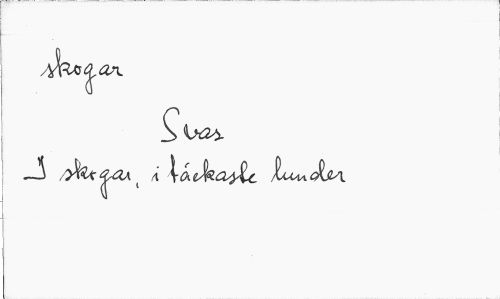 skogar
Svar
I skogar, i täckaste lunder